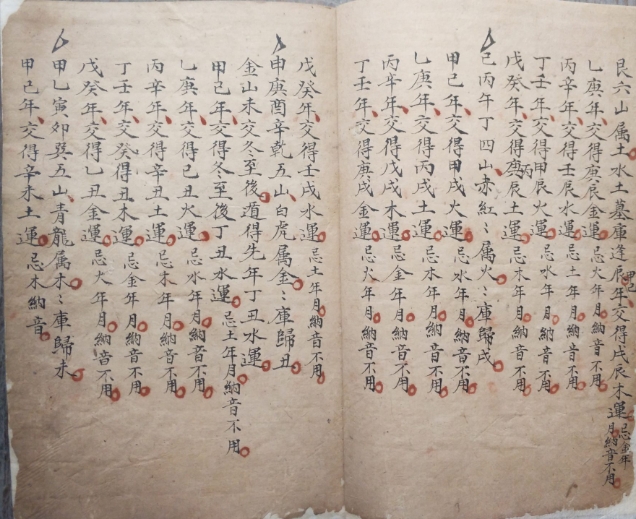 艮六山属土水土墓庫逢辰年甲己交得戊辰木運忌金年月納音不用
乙庚年交得庚辰金運忌火年月納音不用
丙辛年交得壬辰水運忌土年月納音不用
丁壬年交得甲辰火運忌水年月納音不用
戊癸年交得庚丙辰土運忌木年月納音不用
己丙午丁四山赤紅〻属火〻庫歸戌
甲己年交得甲戌火運忌水年月納音不用
乙庚年交得丙戌土運忌木年月納音不用
丙辛年交得戊戌木運忌金年月納音不用
丁壬年交得庚戌金運忌火年月納音不用
戊癸年交得壬戌水運忌土年月納音不用
申庚酉辛乾五山白虎属金〻庫歸丑
金山未交冬至後遁得先年丁丑水運
甲己年交得冬至後丁丑水運忌土年月納音不用
乙庚年交得己丑火運忌水年月納音不用
丙辛年交得辛丑土運忌木年月納音不用
丁壬年交癸得丑木運忌金年月納音不用
戊癸年交得乙丑金運忌火年月納音不用
甲乙寅卯巽五山青龍属木〻庫歸未
甲己年交得辛未土運忌木納音